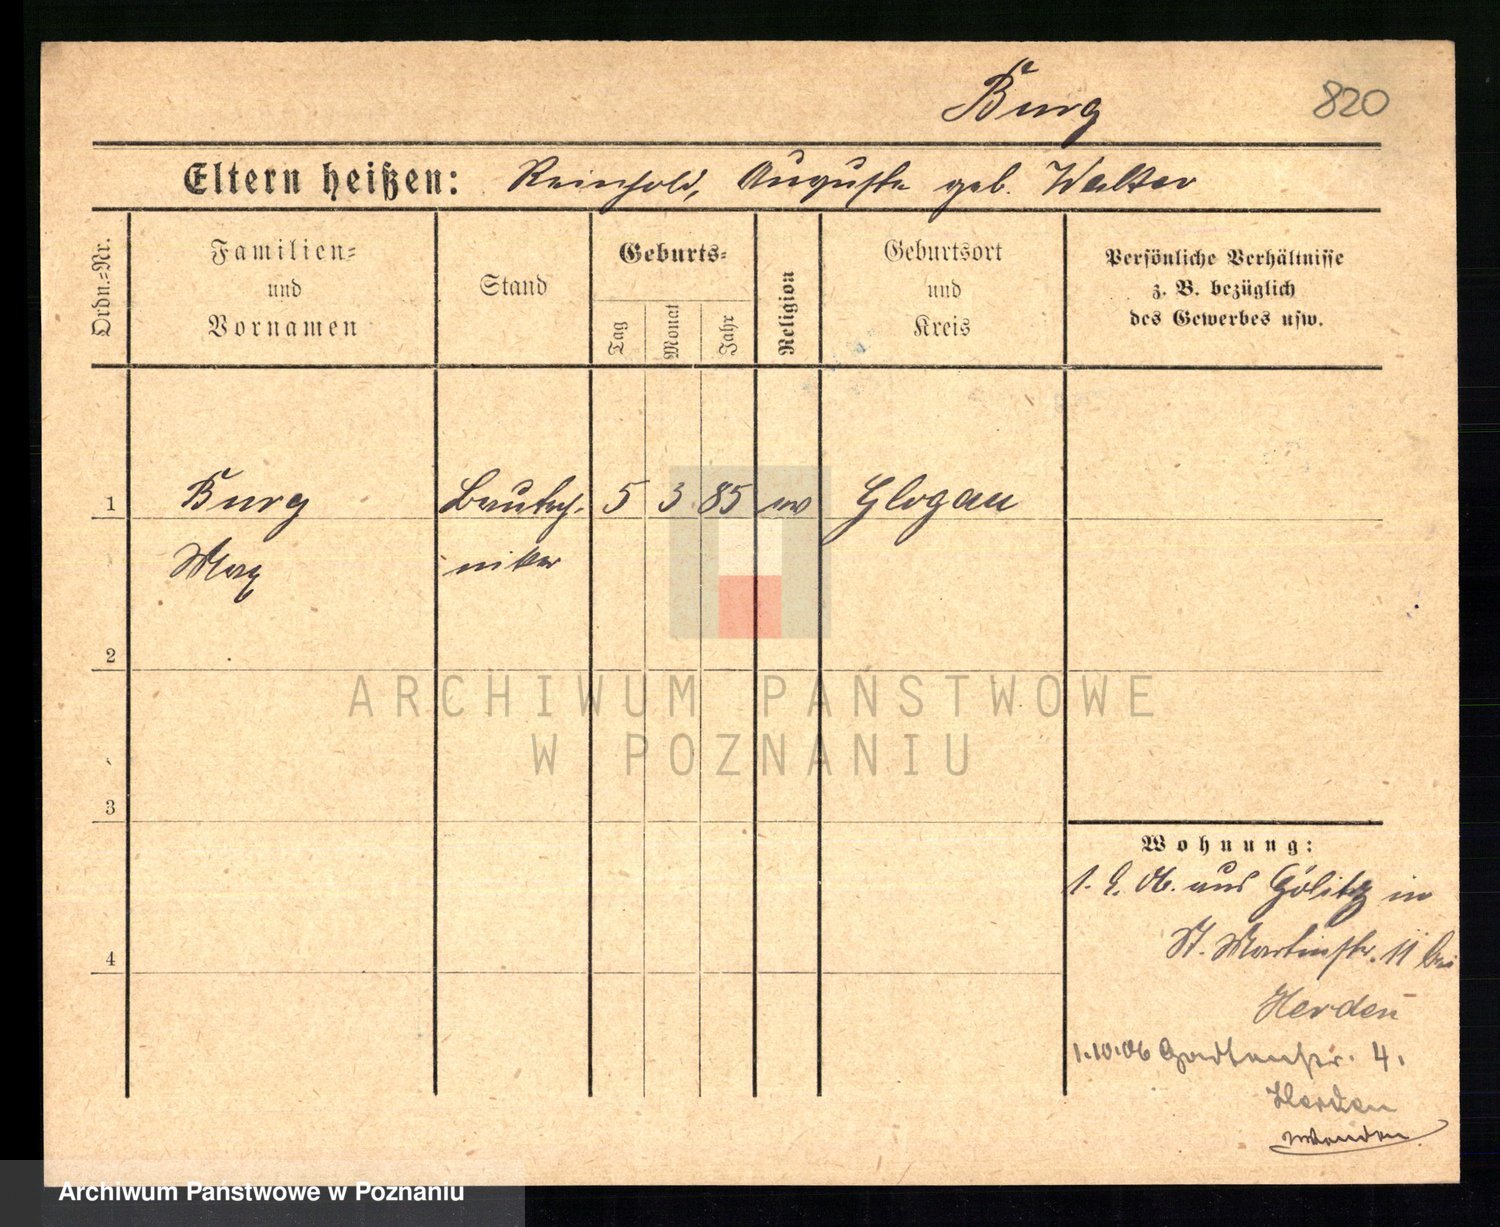 Burg
820
Eltern heißen: Reinhold, Auguste geb. Walter
Ordn.-Nr.
Familien-
und
Vornamen
Stand
Geburts-
Tag
Monat
Jahr
Religion
Geburtsort
und
Kreis
Persönliche Verhältnisse
z. B. bezüglich
des Gewerbes usw.
1 Burg Bautech- 5 3 85 ev Glogau
Max niker
2
3
4
ARCHIWUM PAŃSTWOWE
W POZNANIU
Wohnung:
06. aus Görlitz in
St. Martinstr. 11 bei
Herden
1.10.06 Gartenstr. 4.
Herden
Archiwum Państwowe w Poznaniu